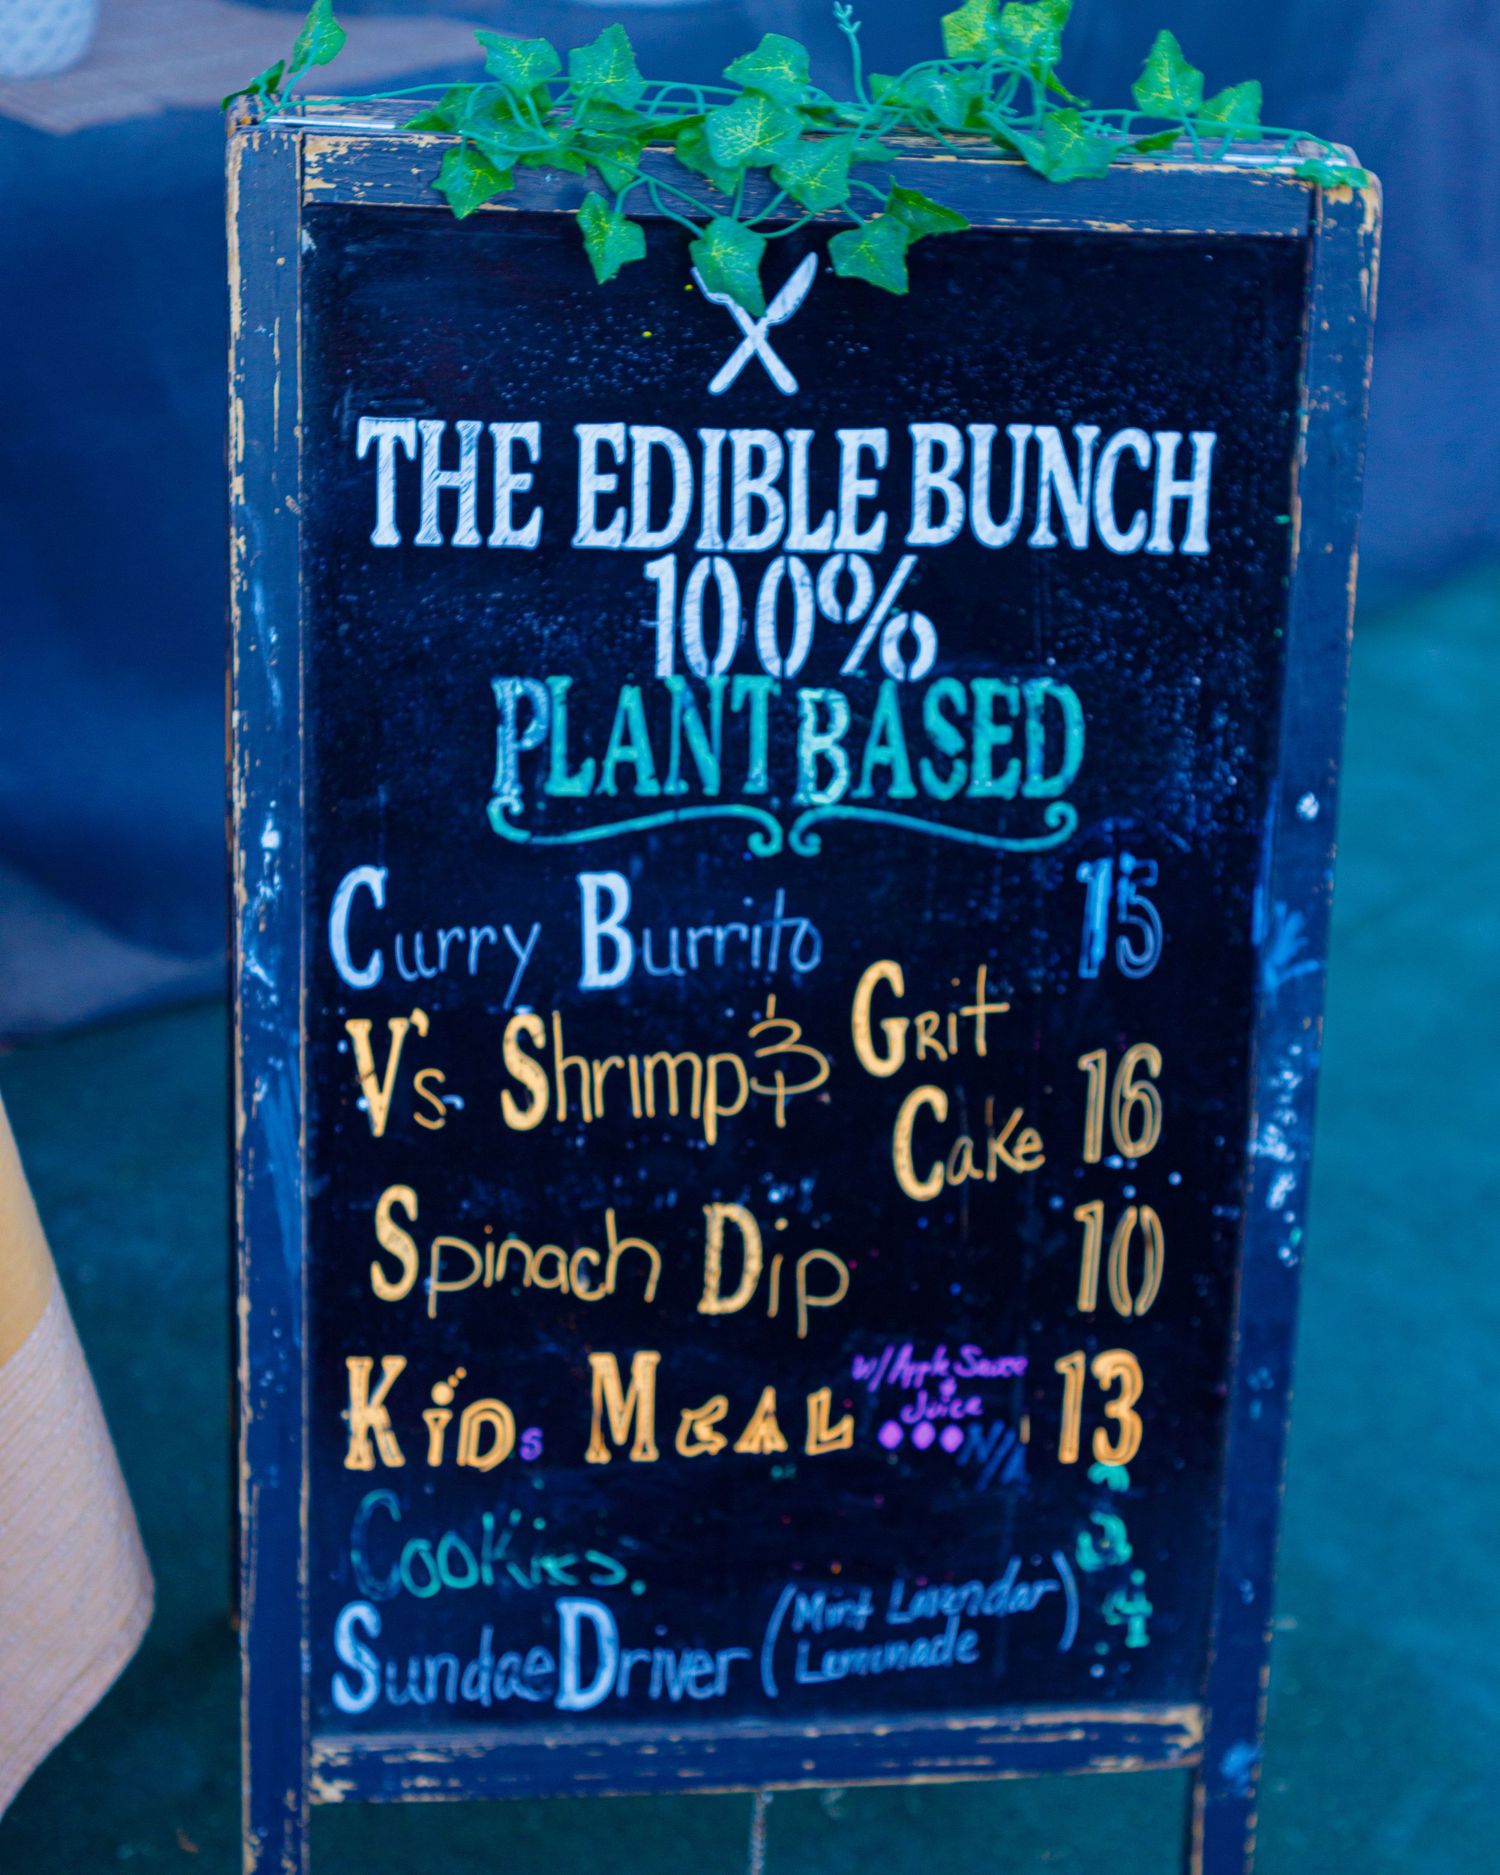 THE EDIBLE BUNCH
100%
PLANT BASED
Curry Burrito 15
V's Shrimp & Grit
Cake 16
Spinach Dip 10
Kids Meal w/Apple Sauce 13
& Juice
N/A
Cookies 3
Sundae Driver (Mint Lavendar 4
Lemonade)